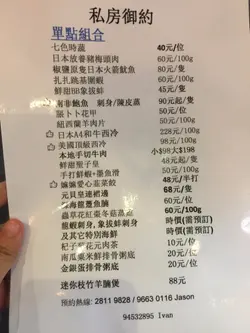 私房御約
單點組合
七色時蔬 40元/位
日本放養豬梅頭肉 60元/100g
椒鹽原隻日本火箭魷魚 80元/隻
扎扎跳基圍蝦 60元/100g
鮮甜BB象拔蚌 45元/隻
南非鮑魚 刺身/陳皮蒸 90元起/隻
脹卜卜花甲 50元/份
紐西蘭羊肉片 50元/份
日本A4和牛西冷 228元/100g
美國頂級西冷 98元/100g
本地手切牛肉 小$98大$198
鮮甜聖子皇 48元起/隻
手打鮮蝦+墨魚滑 50元/份
嫲嫲愛心韮菜餃 48元/半打
元貝皇連裙邊 68元/隻
海龍躉魚腩 60元/份
蟲草花紅棗冬菇蒸雞 60元/100g
龍蝦刺身,象拔蚌刺身 時價(需預訂)
及其它特別海鮮 時價(需預訂)
杞子蓉花元肉茶 10元/位
南瓜粟米鮮排骨粥底 20元/位
金銀蛋排骨粥底 20元/位
迷你枝竹羊腩煲 88元
預約熱線: 2811 9828 / 9663 0116 Jason
94532895 Ivan